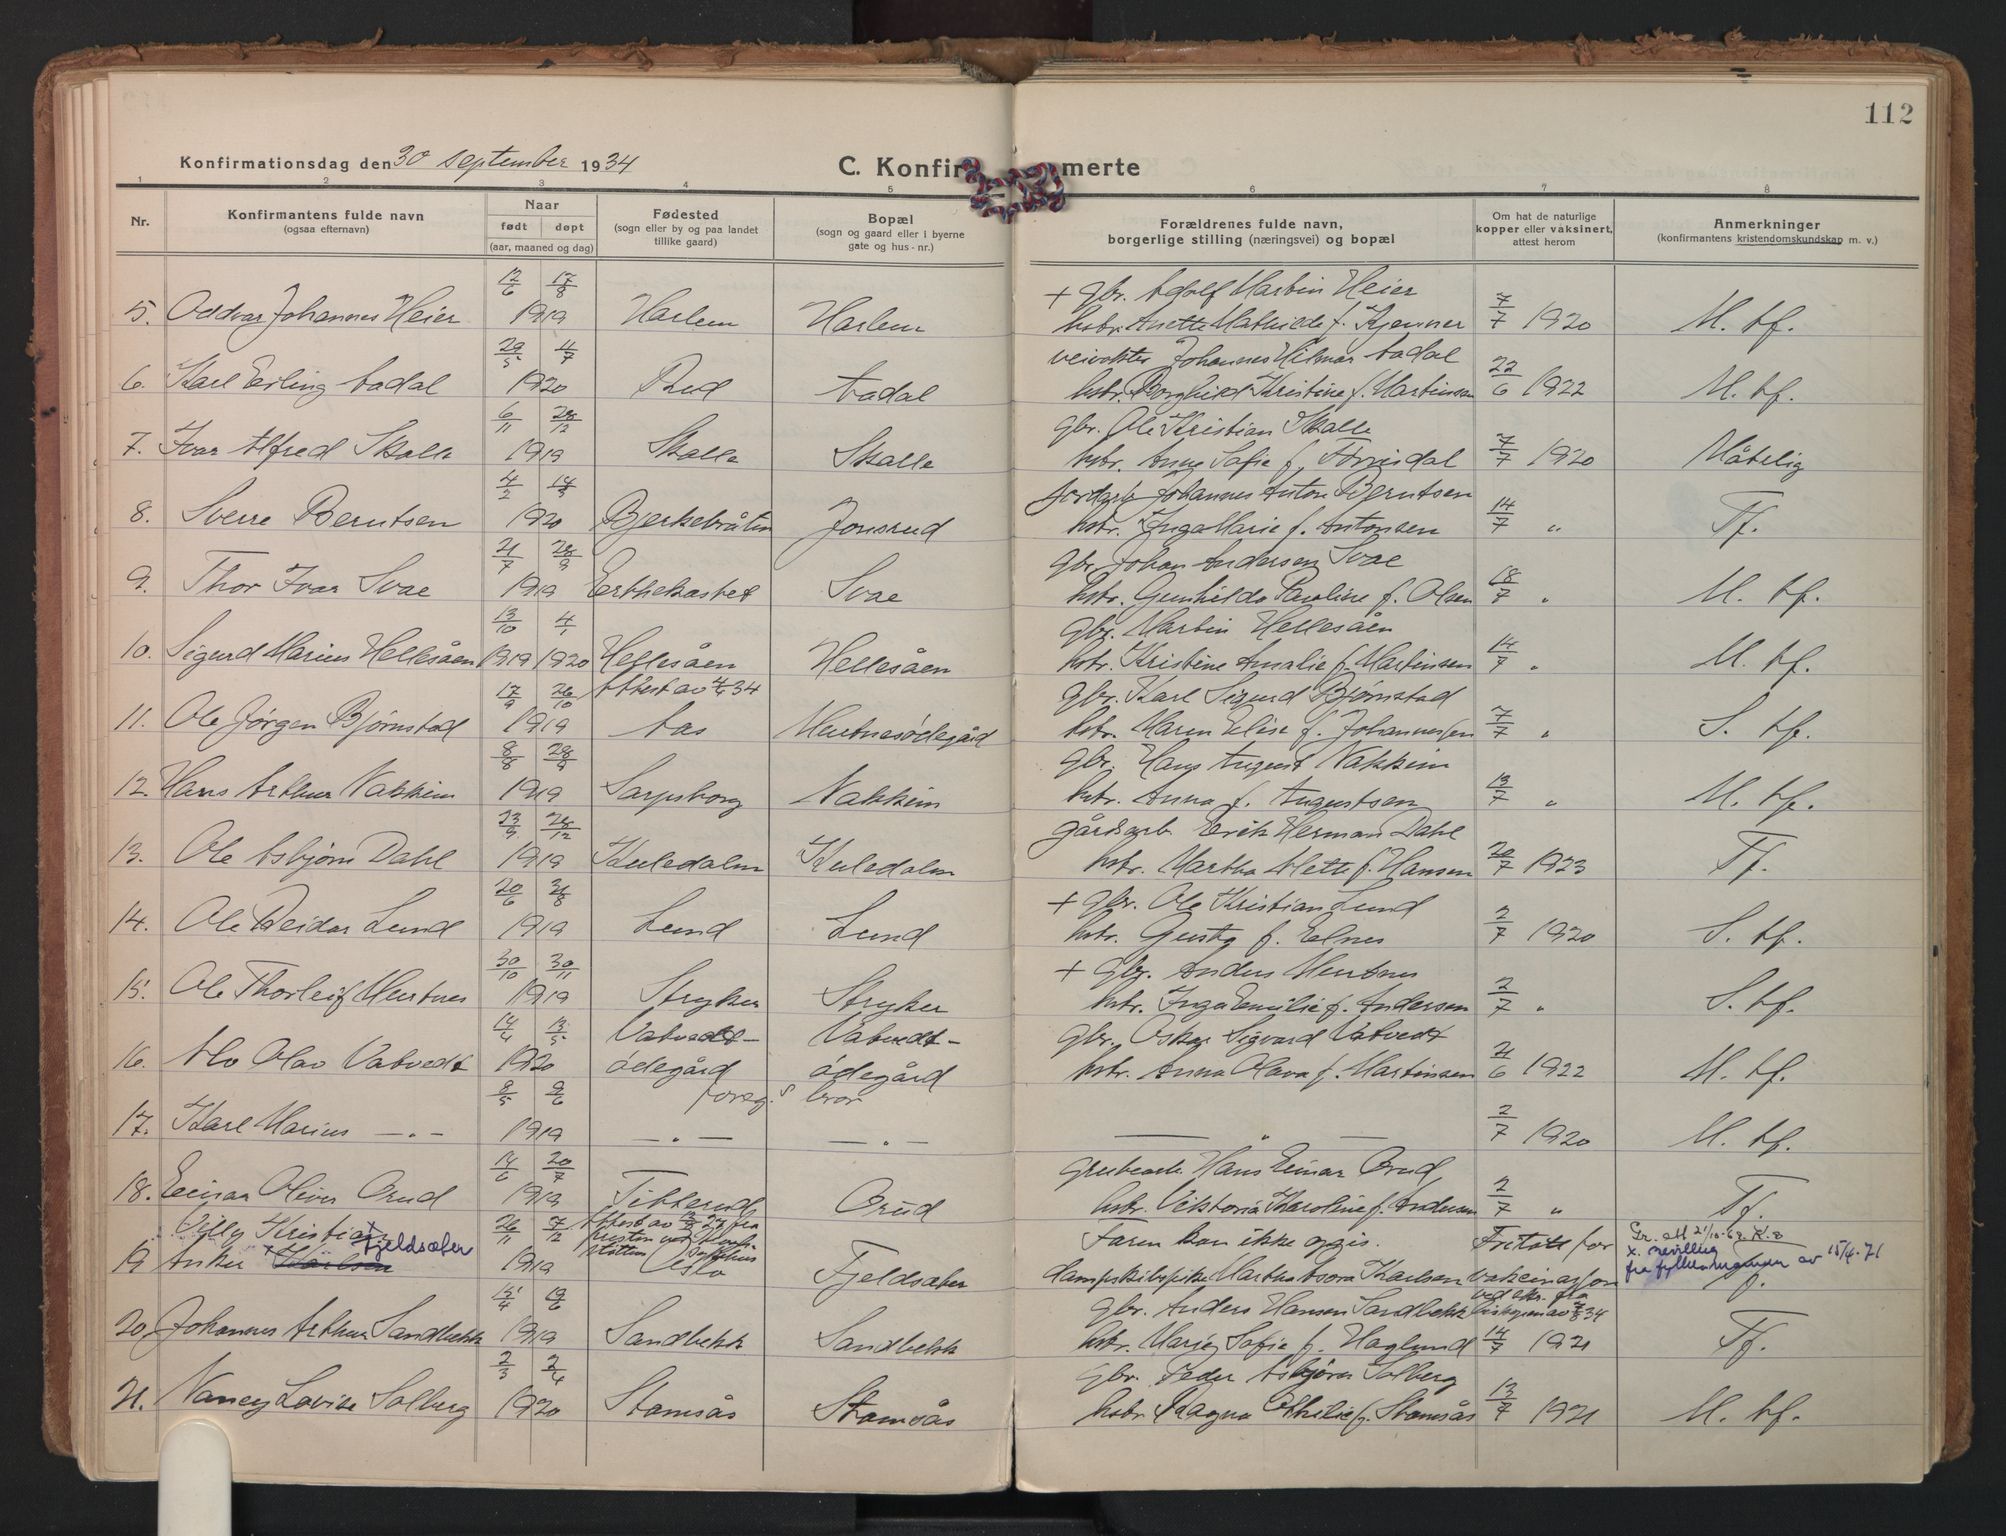 112
Konfirmationsdag den 30 september 1934
C. Konfir merte
1 2 3 4 5 6 7 8
Nr.
Konfirmantens fulde navn
(ogsaa efternavn)
Naar
født døpt
(aar, maaned og dag)
Fødested
(sogn eller by og paa landet
tillike gaard)
Bopæl
(sogn og gaard eller i byerne
gate og hus-nr.)
Forældrenes fulde navn,
borgerlige stilling (næringsvei) og bopæl
Om hat de naturlige
kopper eller vaksinert,
attest herom
Anmerkninger
(konfirmantens kristendomskundskap m. v.)
12/6 17/8 + gbr. Adolf Martin Heier
5. Oddvar Johannes Heier 1919 Harlem Harlem hstr. Anette Mathilde f. Kjenner 7/7 1920 M. tf.
29/5 4/7 veivokter Johannes Hilmar Aadal
6. Karl Erling Aadal 1920 Rud Aadal hstr. Borghild Kristine f. Martinsen 22/6 1922 M. tf.
6/11 28/12 gbr. Ole Kristian Skalle
7. Ivar Alfred Skalle 1919 Skalle Skalle hstr. Anna Sofie f. 7/7 1920 Måtelig
4/2 14/3 jordarb. Johannes Anton Berntsen
8. Sverre Berntsen 1920 Bjerkebråten Jonsrud hstr. Inga Marie f. Antonsen 14/7 " Tf.
21/7 28/9 gbr. Johan Andersen Svae
9. Thor Ivar Svae 1919 Erthekastet Svae hstr. Gunhilda Pauline f. Olsen 18/7 " M. tf.
13/10 4/1 gbr. Martin Hellesåen
10. Sigurd Marius Hellesåen 1919 1920 Hellesåen Hellesåen hstr. Kristine Amalie f. Martinsen 14/7 " M. tf.
17/9 26/10 Attest av 4/9 34 gbr. Karl Sigurd Bjørnstad
11. Ole Jørgen Bjørnstad 1919 Aas Mentnesødegård hstr. Maren Elise f. Johannessen 7/7 " S. tf.
8/8 28/9 gbr. Hans August Nakkim
12. Hans Arthur Nakkim 1919 Sarpsborg Nakkim hstr. Anna f. Augustsen 13/7 " M. tf.
23/9 28/12 gårdsarb. Erik Herman Dahl
13. Ole Asbjørn Dahl 1919 Kuledalen Kuledalen hstr. Martha Mette f. Hansen 20/7 1923 Tf.
20/6 31/8 + gbr. Ole Kristian Lund
14. Ole Reidar Lund 1919 Lund Lund hstr. Gusta f. Elnes 2/7 1920 S. tf.
30/10 30/11 + gbr. Anders Mentnes
15. Ole Thorleif Mentnes 1919 Stryker Stryker hstr. Inga Emilie f. Andersen 2/7 " S. tf.
14/4 13/5 Vatvedt- Vatvedt- gbr. Oskar Sigvard Vatvedt
16. Alv Olav Vatvedt 1920 ødegård ødegård hstr. Anna Olava f. Martinsen 21/6 1922 M. tf.
8/5 8/6 foreg.s bror
17. Karl Marius — " — 1919 — " — — " — — " — 2/7 1920 M. tf.
14/6 20/7 grubearb. Hans Einar Orud
18. Einar Oliver Orud 1919 Titterud Orud hstr. Viktoria Karoline f. Andersen 2/7 " Tf.
Villy Kristian Fjeldsæter 26/11 7/12 Attest av fra Faren kan ikke opgis. Fritatt for
19 Anker Karlsen 1919 Oslo Fjeldsæter dampskibspike Martha Asora Karlsen vaksinasjon
x. bevilling
fra fylkesmannen av 15/4-71
Tf.
15/4 19/6 gbr. Anders Hansen Sandbekk
20. Johannes Arthur Sandbekk 1919 Sandbekk Sandbekk hstr. Marie Sofie f. Haglund 14/7 1921 Tf.
2/3 2/4 gbr. Peder Asbjørn Solberg
21. Nancy Lovise Solberg 1920 Stamsås Stamsås hstr. Ragna Othilie f. Stamsås 13/7 1921 M. tf.